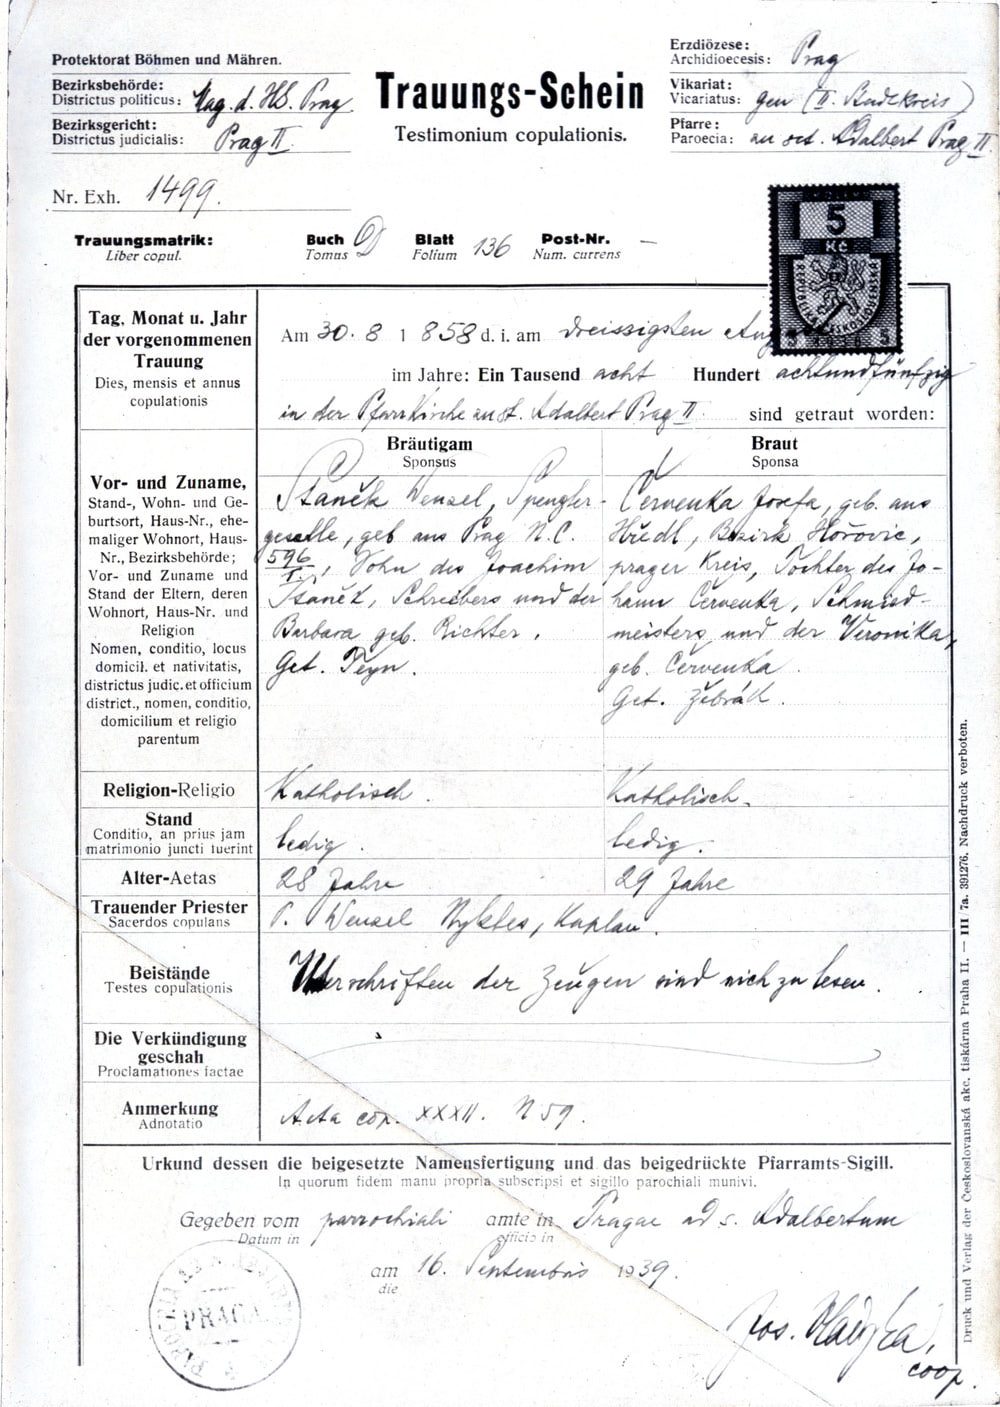 Protektorat Böhmen und Mähren.
Bezirksbehörde:
Districtus politicus: Mag. d. HS. Prag
Bezirksgericht:
Districtus judicialis: Prag II.
Trauungs-Schein
Testimonium copulationis.
Erzdiözese:
Archidioecesis: Prag
Vikariat:
Vicariatus: gen (II.
Pfarre:
Paroecia: an sct. Adalbert Prag II.
Nr. Exh. 1499.
Trauungsmatrik:
Liber copul.
Buch D
Tomus
Blatt 136
Folium
Post-Nr. —
Num. currens
5
Kč
Tag, Monat u. Jahr
der vorgenommenen
Trauung
Dies, mensis et annus
copulationis
Am 30. 8 1 858 d. i. am dreissigsten Aug
im Jahre: Ein Tausend acht Hundert achtundfünfzig
in der Pfarrkirche an st. Adalbert Prag II. sind getraut worden:
Bräutigam
Sponsus
Braut
Sponsa
Vor- und Zuname,
Stand-, Wohn- und Ge-
burtsort, Haus-Nr., ehe-
maliger Wohnort, Haus-
Nr., Bezirksbehörde;
Vor- und Zuname und
Stand der Eltern, deren
Wohnort, Haus-Nr. und
Religion
Nomen, conditio, locus
domicil. et nativitatis,
districtus judic. et officium
district., nomen, conditio,
domicilium et religio
parentum
Staněk Wensel, Spengler-
geselle, geb aus Prag N.C.
596/I., Sohn des Joachim
Staněk, Schreibers und der
Barbara geb. Richter.
Get. Teyn.
Červenka Josefa, geb. aus
Hředl, Bezirk Hořovic,
prager Kreis, Tochter des Jo-
hann Červenka, Schmied-
meisters und der Veronika,
geb. Červenka.
Get. Žebrák.
Religion-Religio
Katholisch.
Katholisch.
Stand
Conditio, an prius jam
matrimonio juncti fuerint
ledig.
ledig.
Alter-Aetas
28 Jahre
29 Jahre
Trauender Priester
Sacerdos copulans
P. Wensel Kaplan.
Beistände
Testes copulationis
Unterschriften der Zeugen sind nich zu lesen.
Die Verkündigung
geschah
Proclamationes factae
Anmerkung
Adnotatio
Acta cop. XXXII. N 59.
Urkund dessen die beigesetzte Namensfertigung und das beigedrückte Pfarramts-Sigill.
In quorum fidem manu propria subscripsi et sigillo parochiali munivi.
Gegeben vom parrochiali amte in Pragae ad s. Adalbertum
Datum in officio in
am 16. Septembris 1939.
die
PRAGA
Jos.
coop.
Druck und Verlag der Českoslovanská akc. tiskárna Praha II. — III/7a. 391276. Nachdruck verboten.